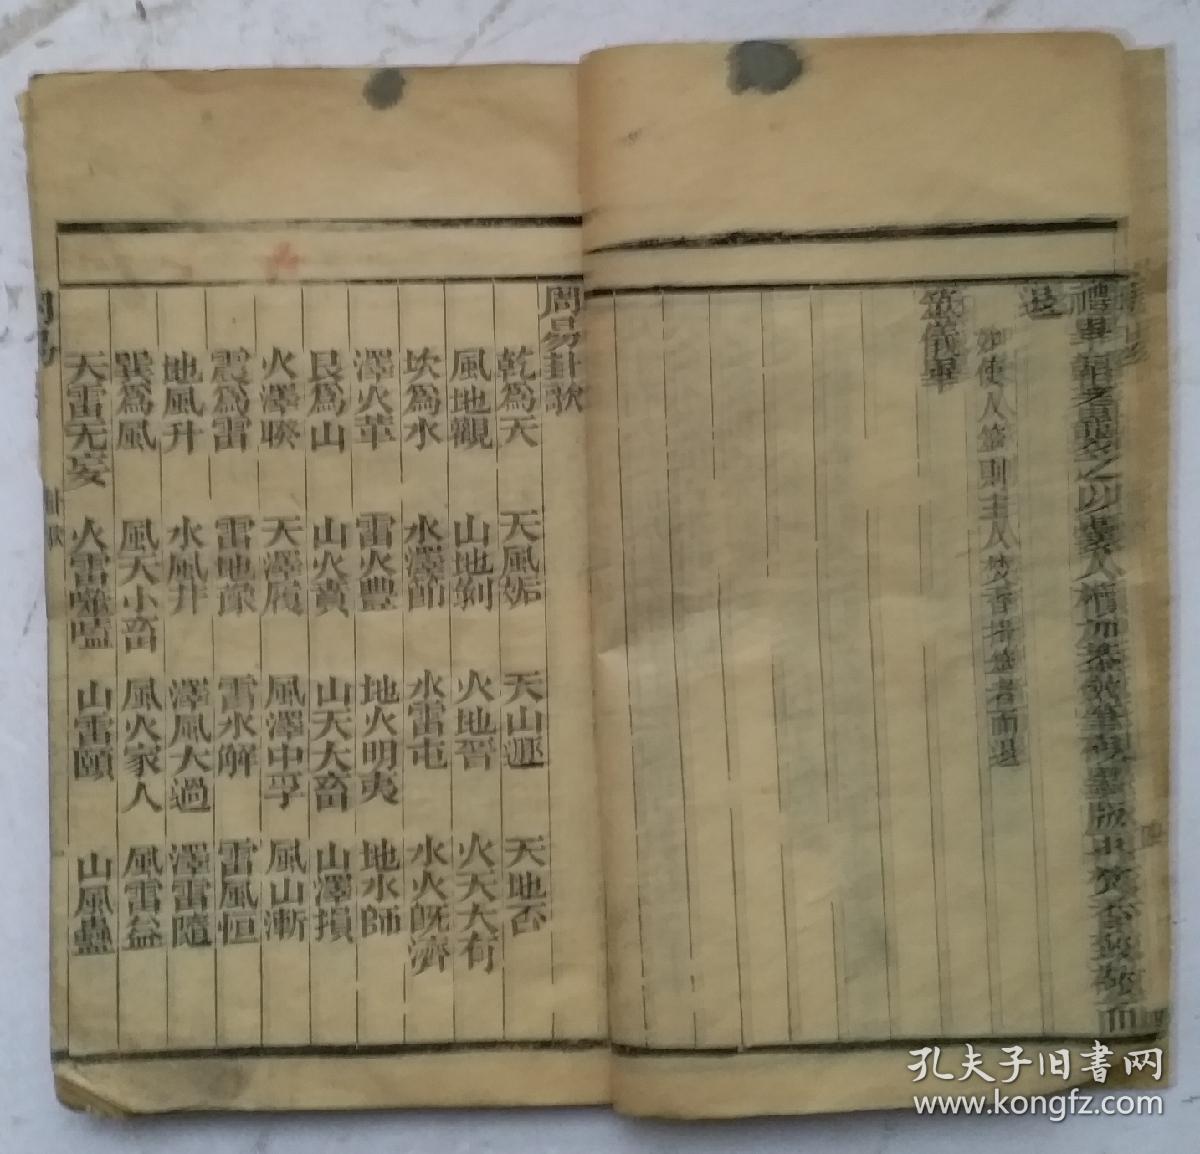 禮畢韜蓍襲之以囊入櫝加蓋斂筆硯墨版再焚香致敬而
退
如使人筮則主人焚香揖筮者而退
筮儀畢
周易卦歌
乾為天 天風姤 天山遯 天地否
風地觀 山地剝 火地晉 火天大有
坎為水 水澤節 水雷屯 水火既濟
澤火革 雷火豐 地火明夷 地水師
艮為山 山火賁 山天大畜 山澤損
火澤睽 天澤履 風澤中孚 風山漸
震為雷 雷地豫 雷水解 雷風恒
地風升 水風井 澤風大過 澤雷隨
巽為風 風天小畜 風火家人 風雷益
天雷无妄 火雷噬嗑 山雷頤 山風蠱
周易 卦歌
孔夫子旧书网
www.kongfz.com